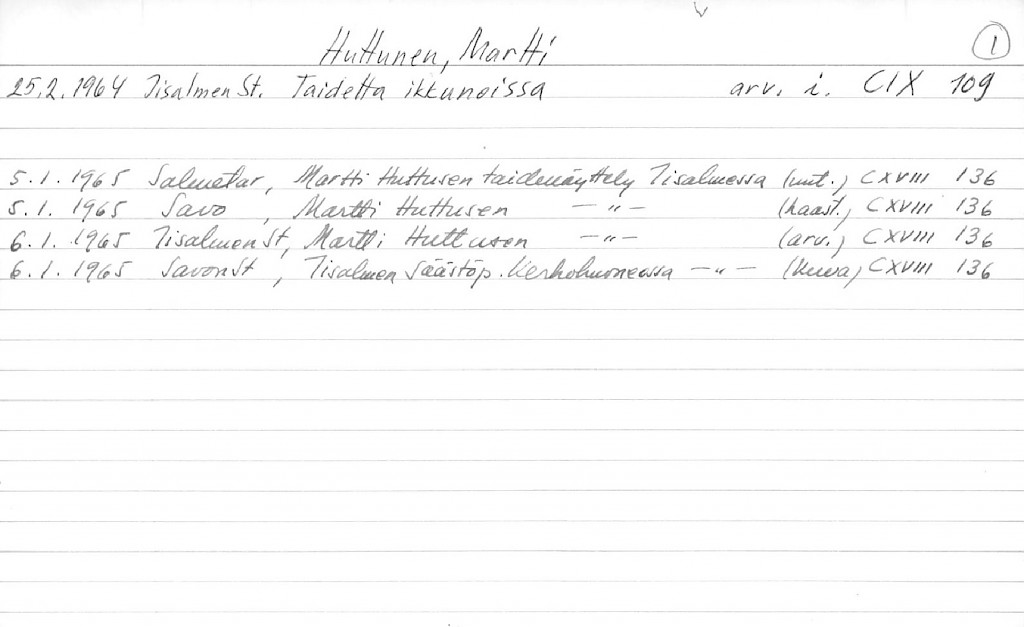 Huttunen, Martti 1
25.2.1964 Iisalmen St. Taidetta ikkunoissa arv. i. CIX 109
5.1.1965 Salmetar, Martti Huttusen taidenäyttely Iisalmessa (uut.) CXVIII 136
5.1.1965 Savo, Martti Huttusen —"— (haast.) CXVIII 136
6.1.1965 Iisalmen St, Martti Huttusen —"— (arv.) CXVIII 136
6.1.1965 Savon St, Iisalmen Säästöp. Kerhohuoneessa —"— (kuva) CXVIII 136